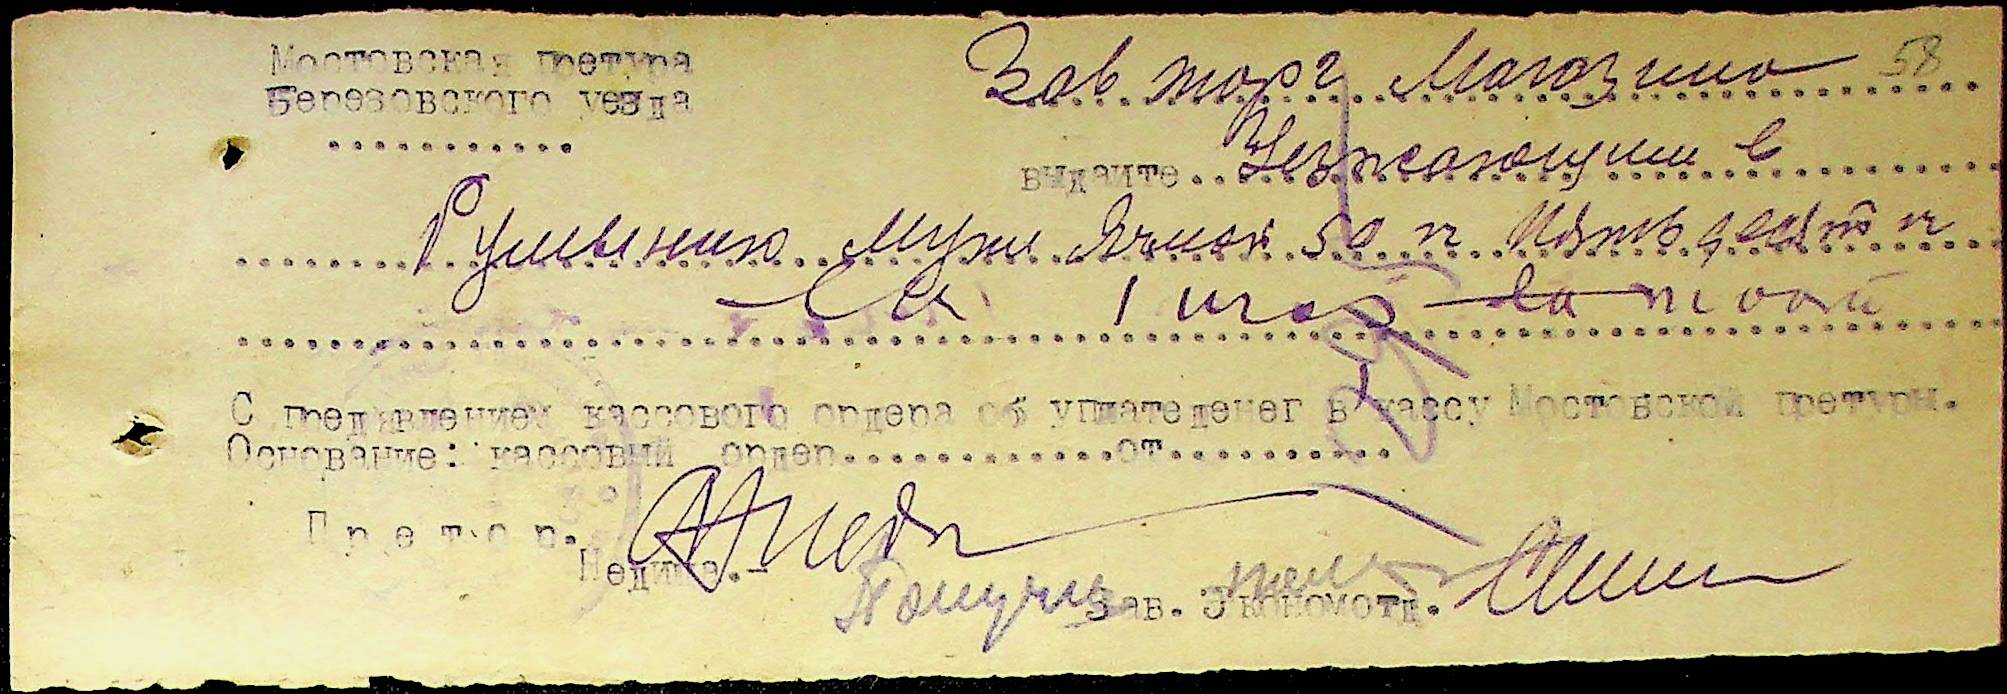 Мостовская претура
Березовского уезда
58
Зав торг Магазина
выдайте Уезжающим в
Румынию муки Ячмен 50 кг Пятьдесят кг
С предявлением кассового ордера об уплате денег в кассу Мостовской претуры.
Основание: кассовый ордер.............от............
Претор.
Недина.-
Получил
Зав. Экономотд.